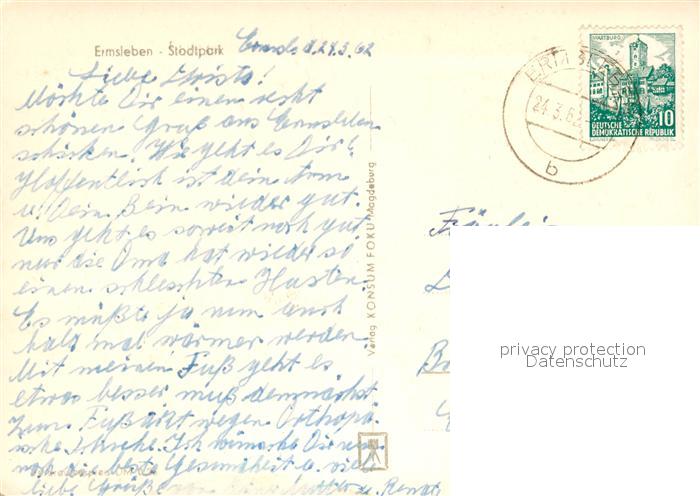 Ermsleben - Stadtpark
Ermsl. d. 24.3.62
Liebe Christa!
Möchte Dir einen recht
schönen Gruß aus Ermsleben
schicken. Wie geht es Dir?
Hoffentlich ist dein Arm
u. Dein Bein wieder gut.
Uns geht es soweit noch gut
nur die Oma hat wieder so
einen schlechten Husten.
Es müßte ja nun auch
bald mal wärmer werden.
Mit meinen Fuß geht es
etwas besser muß demnächst
zum Fußarzt wegen Orthopä-
sche Schuhe. Ich wünsche Dir nun
noch beste Gesundheit u. viele
liebe Grüße von Mutter u. Renate
Verlag KONSUM FOKU Magdeburg
WARTBURG
10
DEUTSCHE
DEMOKRATISCHE REPUBLIK
ERMSLEBEN
24.3.62
b
Fräulein
privacy protection
Datenschutz